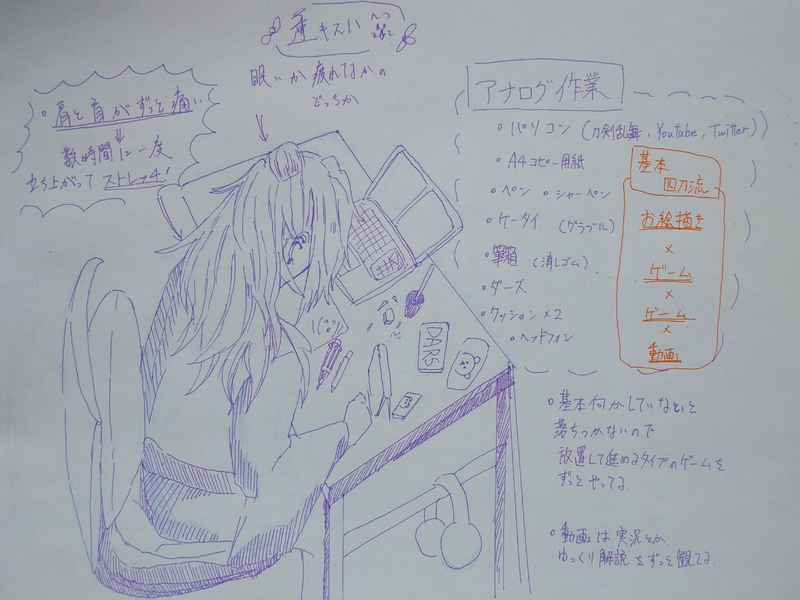 眠いか疲れてるかの
どっちか
・肩と首がずっと痛い
数時間に一度
立ち上がってストレッチ!
アナログ作業
・パソコン (刀剣乱舞, Youtube, Twitter)
・A4コピー用紙
・ペン ・シャーペン
・ケータイ (グラブル)
・筆箱 (消しゴム)
・ダース
・クッション×2
・ヘッドフォン
基本
四刀流
お絵描き
×
ゲーム
×
ゲーム
×
動画
DARS
・基本何かしていないと
落ちつかないので
放置して進めるタイプのゲームを
ずっとやってる
・動画は実況とか、
ゆっくり解説をずっと観てる